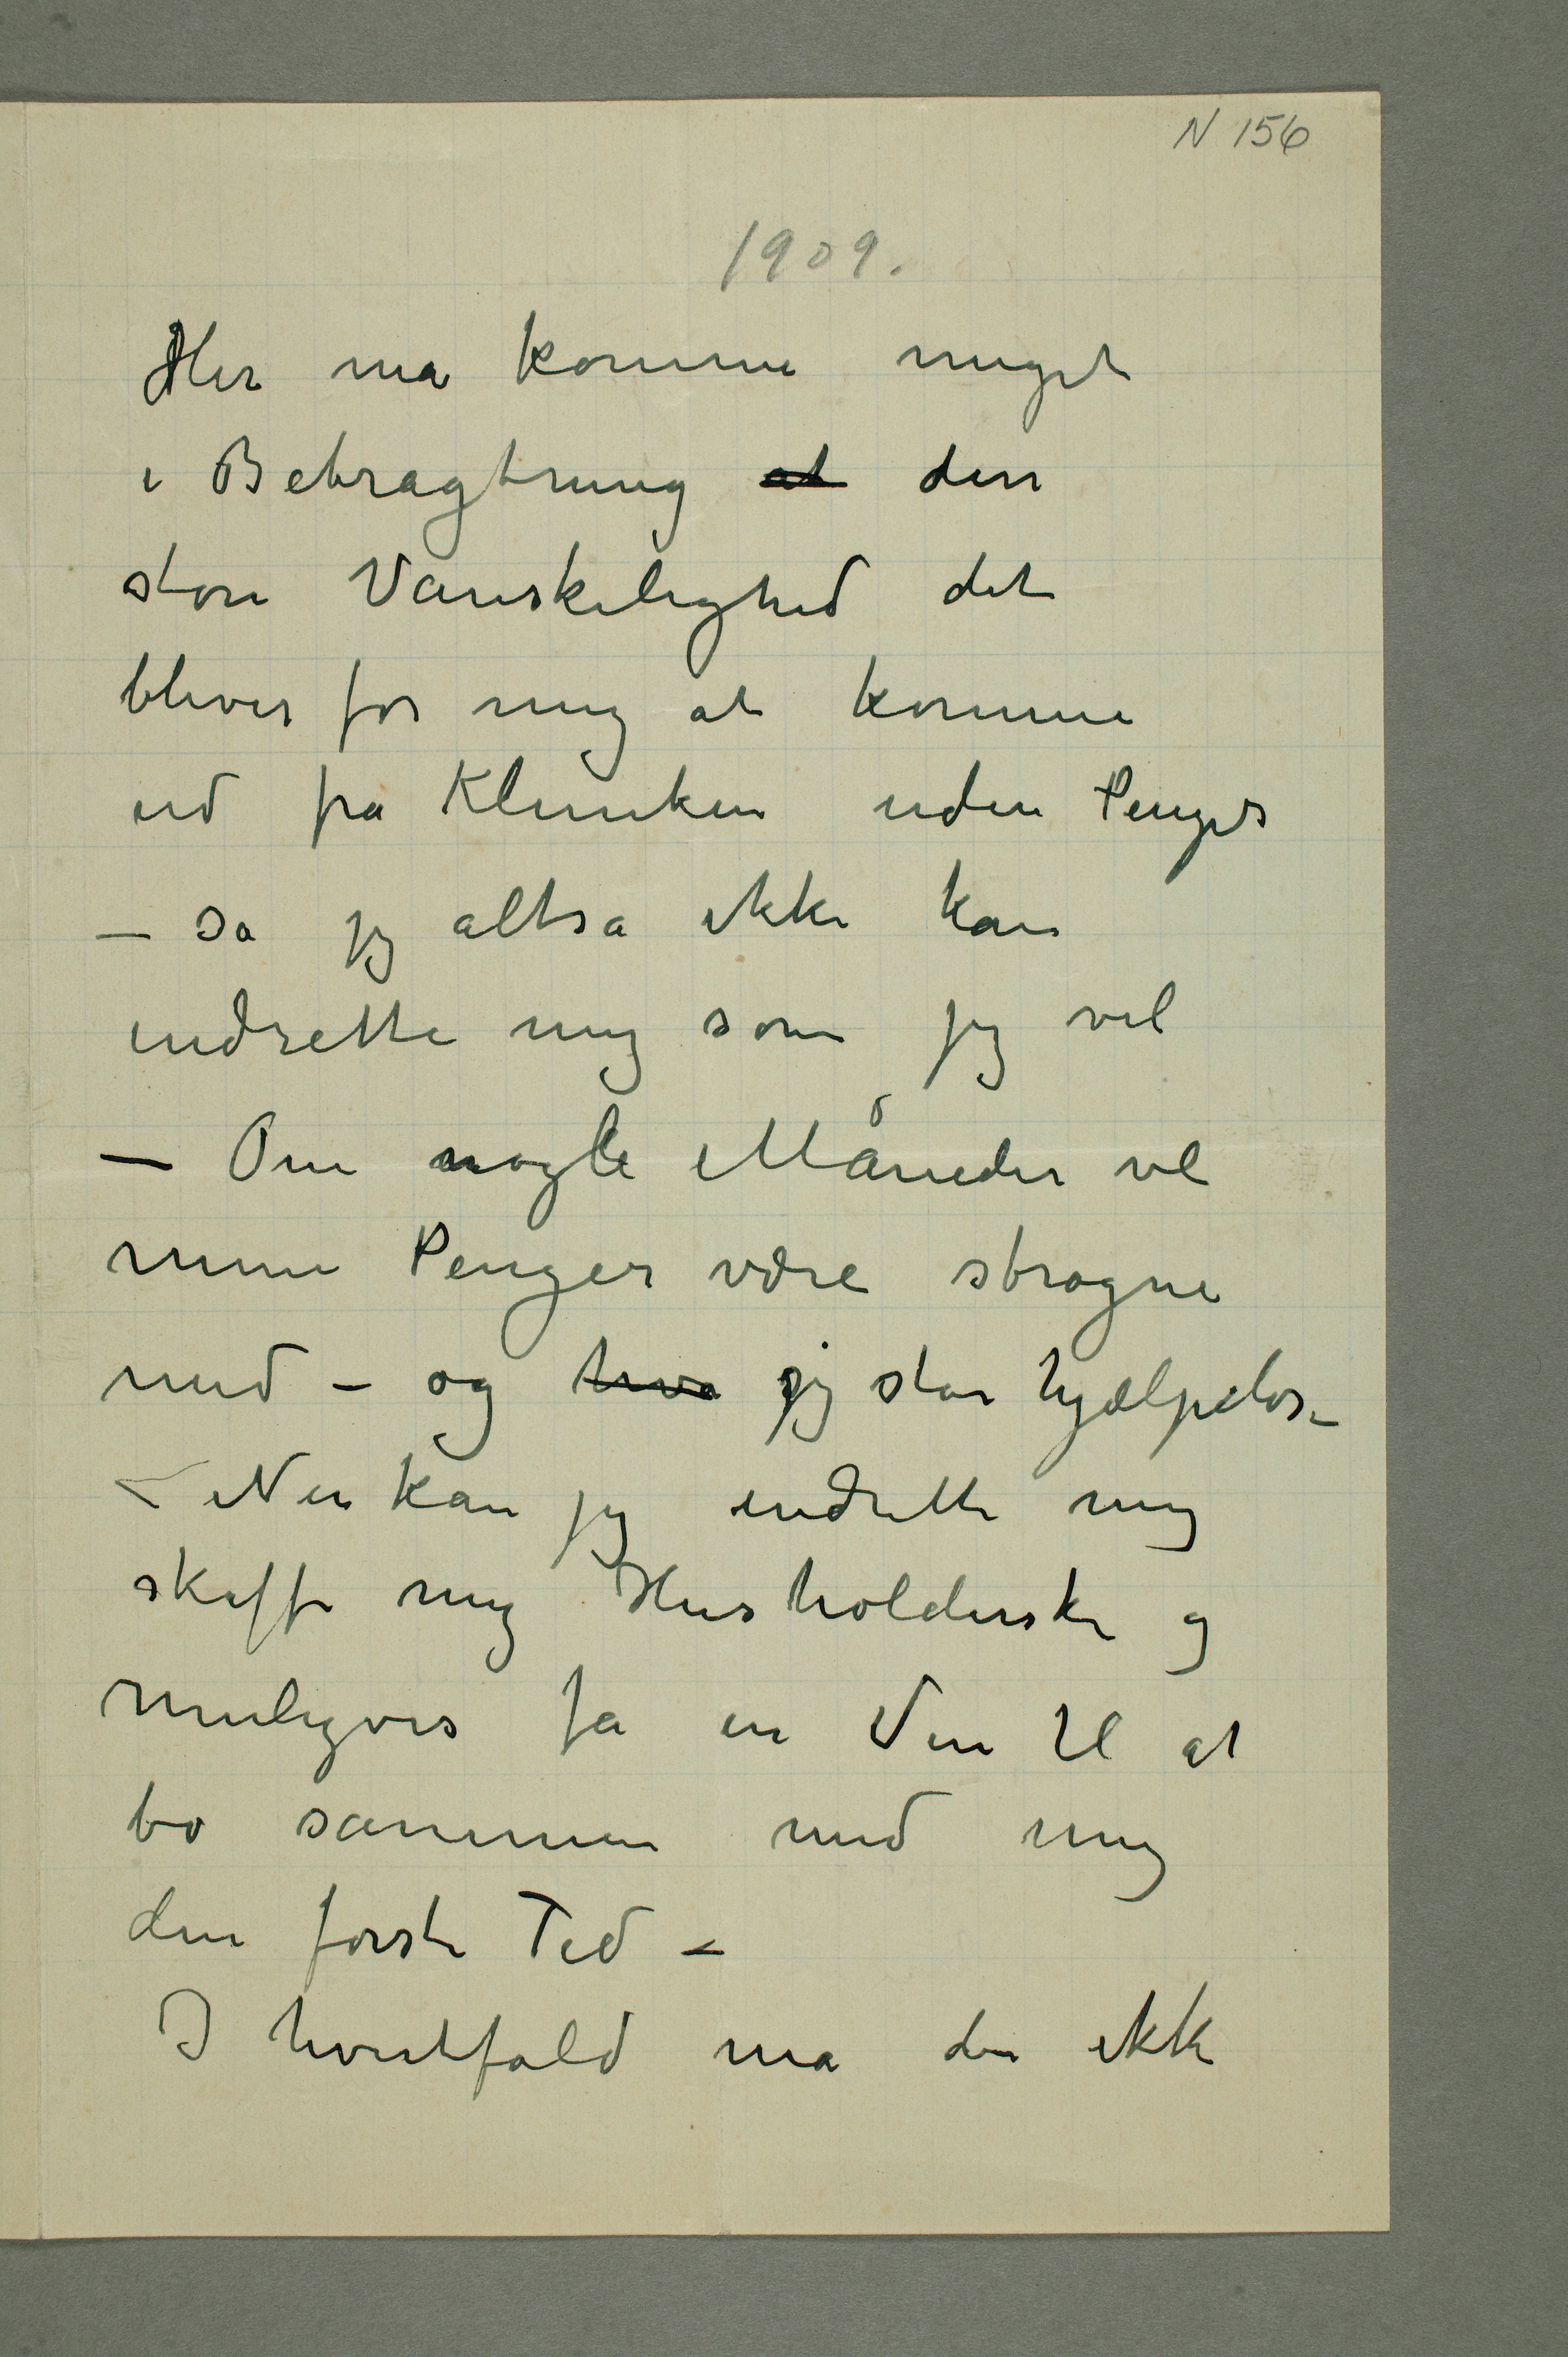 N 156
1909.
Her må komme meget
i Betragtning at den
store Vanskelighed det
bliver for mig at komme
ud fra Kliniken uden Penger
– så jeg altså ikke kan
indrette mig som jeg vil
– Om nogle Måneder vil
mine Penger være strøgne
med – og hva jeg står hjælpeløs –
– Nu kan jeg indrette mig
skaffe mig Husholderske og
muligvis få en Ven til at
bo sammen med mig
den første Tid –
I hvertfald må der ikke